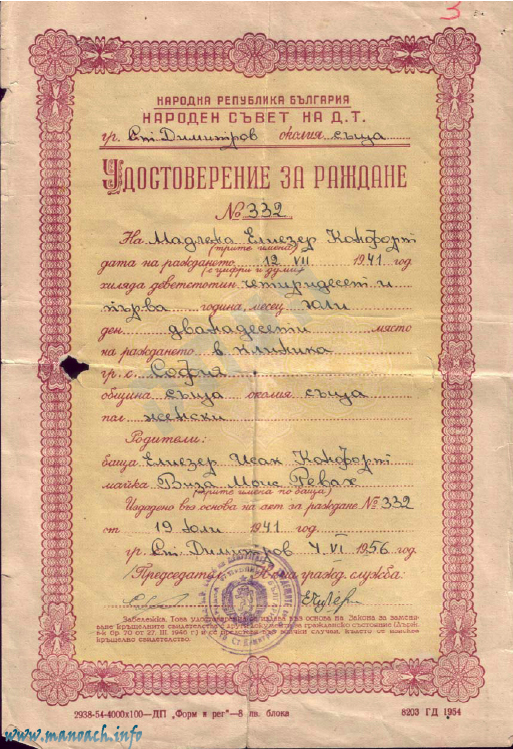 3
НАРОДНА РЕПУБЛИКА БЪЛГАРИЯ
НАРОДЕН СЪВЕТ НА Д.Т.
гр. Ст. Димитров околия съща
УДОСТОВЕРЕНИЕ ЗА РАЖДАНЕ
№ 332
На Мадлена Елиезер Конфорти
(трите имена)
дата на раждането 12 VII 1941 год
(с цифри и думи)
хиляда деветстотин четиридесет и
първа година, месец Юли
ден дванадесети място
на раждането в клиника
гр. с. София
община съща околия съща
пол женски
Родители:
баща Елиезер Исак Конфорти
майка Виза Моис Ревах
(трите имена по баща)
Издадено въз основа на акт за раждане № 332
от 19 юли 1941 год.
гр. Ст. Димитров 4 VI 1956 год.
/Председател: Н-ка гражд. служба:
Забележка. Това удостоверение се издава въз основа на Закона за заменяване
кръщелните свидетелства с гражданско състояние (Държ.
в-к бр. 70 от 27. III. 1946 г.) и се във всички случаи, където се изисква
кръщелно свидетелство.
2938-54-4000х100—ДП „Форм и рег"—8 лв. блока 8203 ГД 1954
www.manoach.info